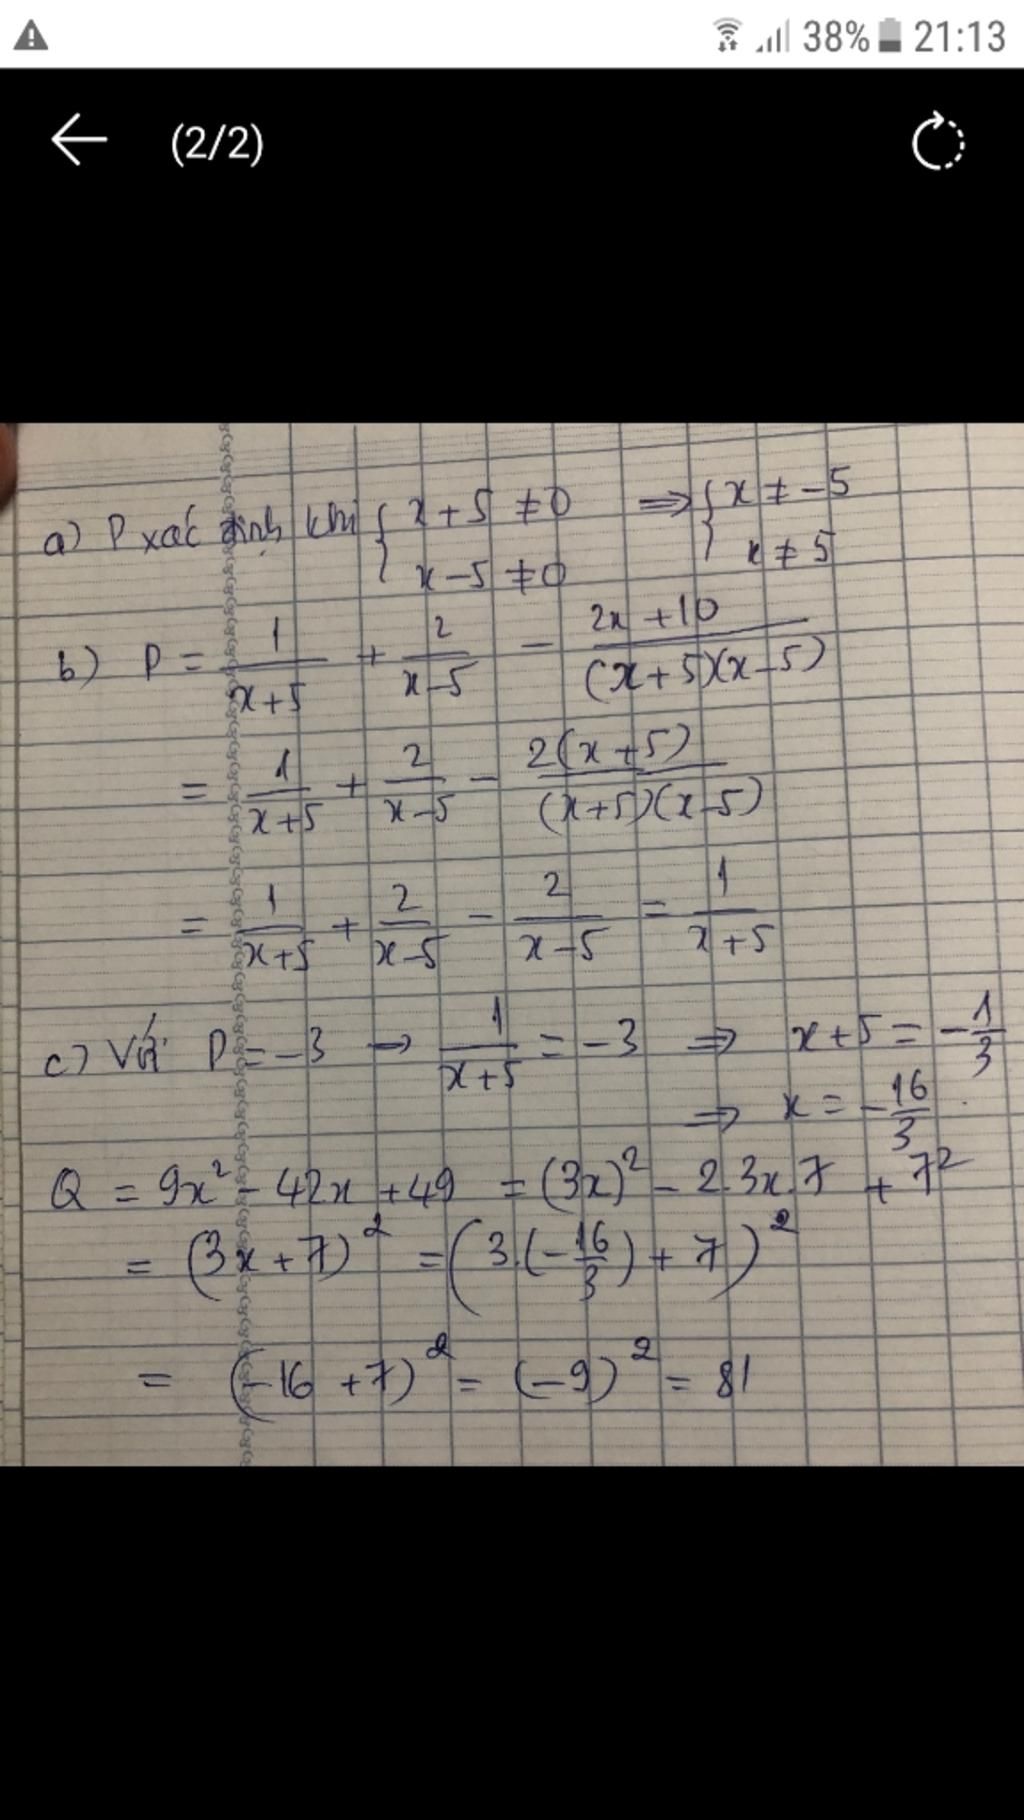 38% 21:13
(2/2)
a) P xác định khi { x + 5 ≠ 0 ⇒ { x ≠ -5
x - 5 ≠ 0 x ≠ 5
b) P = 1/(x+5) + 2/(x-5) - (2x+10)/((x+5)(x-5))
= 1/(x+5) + 2/(x-5) - 2(x+5)/((x+5)(x-5))
= 1/(x+5) + 2/(x-5) - 2/(x-5) = 1/(x+5)
c) Với P = -3 → 1/(x+5) = -3 ⇒ x+5 = -1/3
⇒ x = -16/3.
Q = 9x² - 42x + 49 = (3x)² - 2.3x.7 + 7²
= (3x+7)² = (3.(-16/3) + 7)²
= (-16 + 7)² = (-9)² = 81